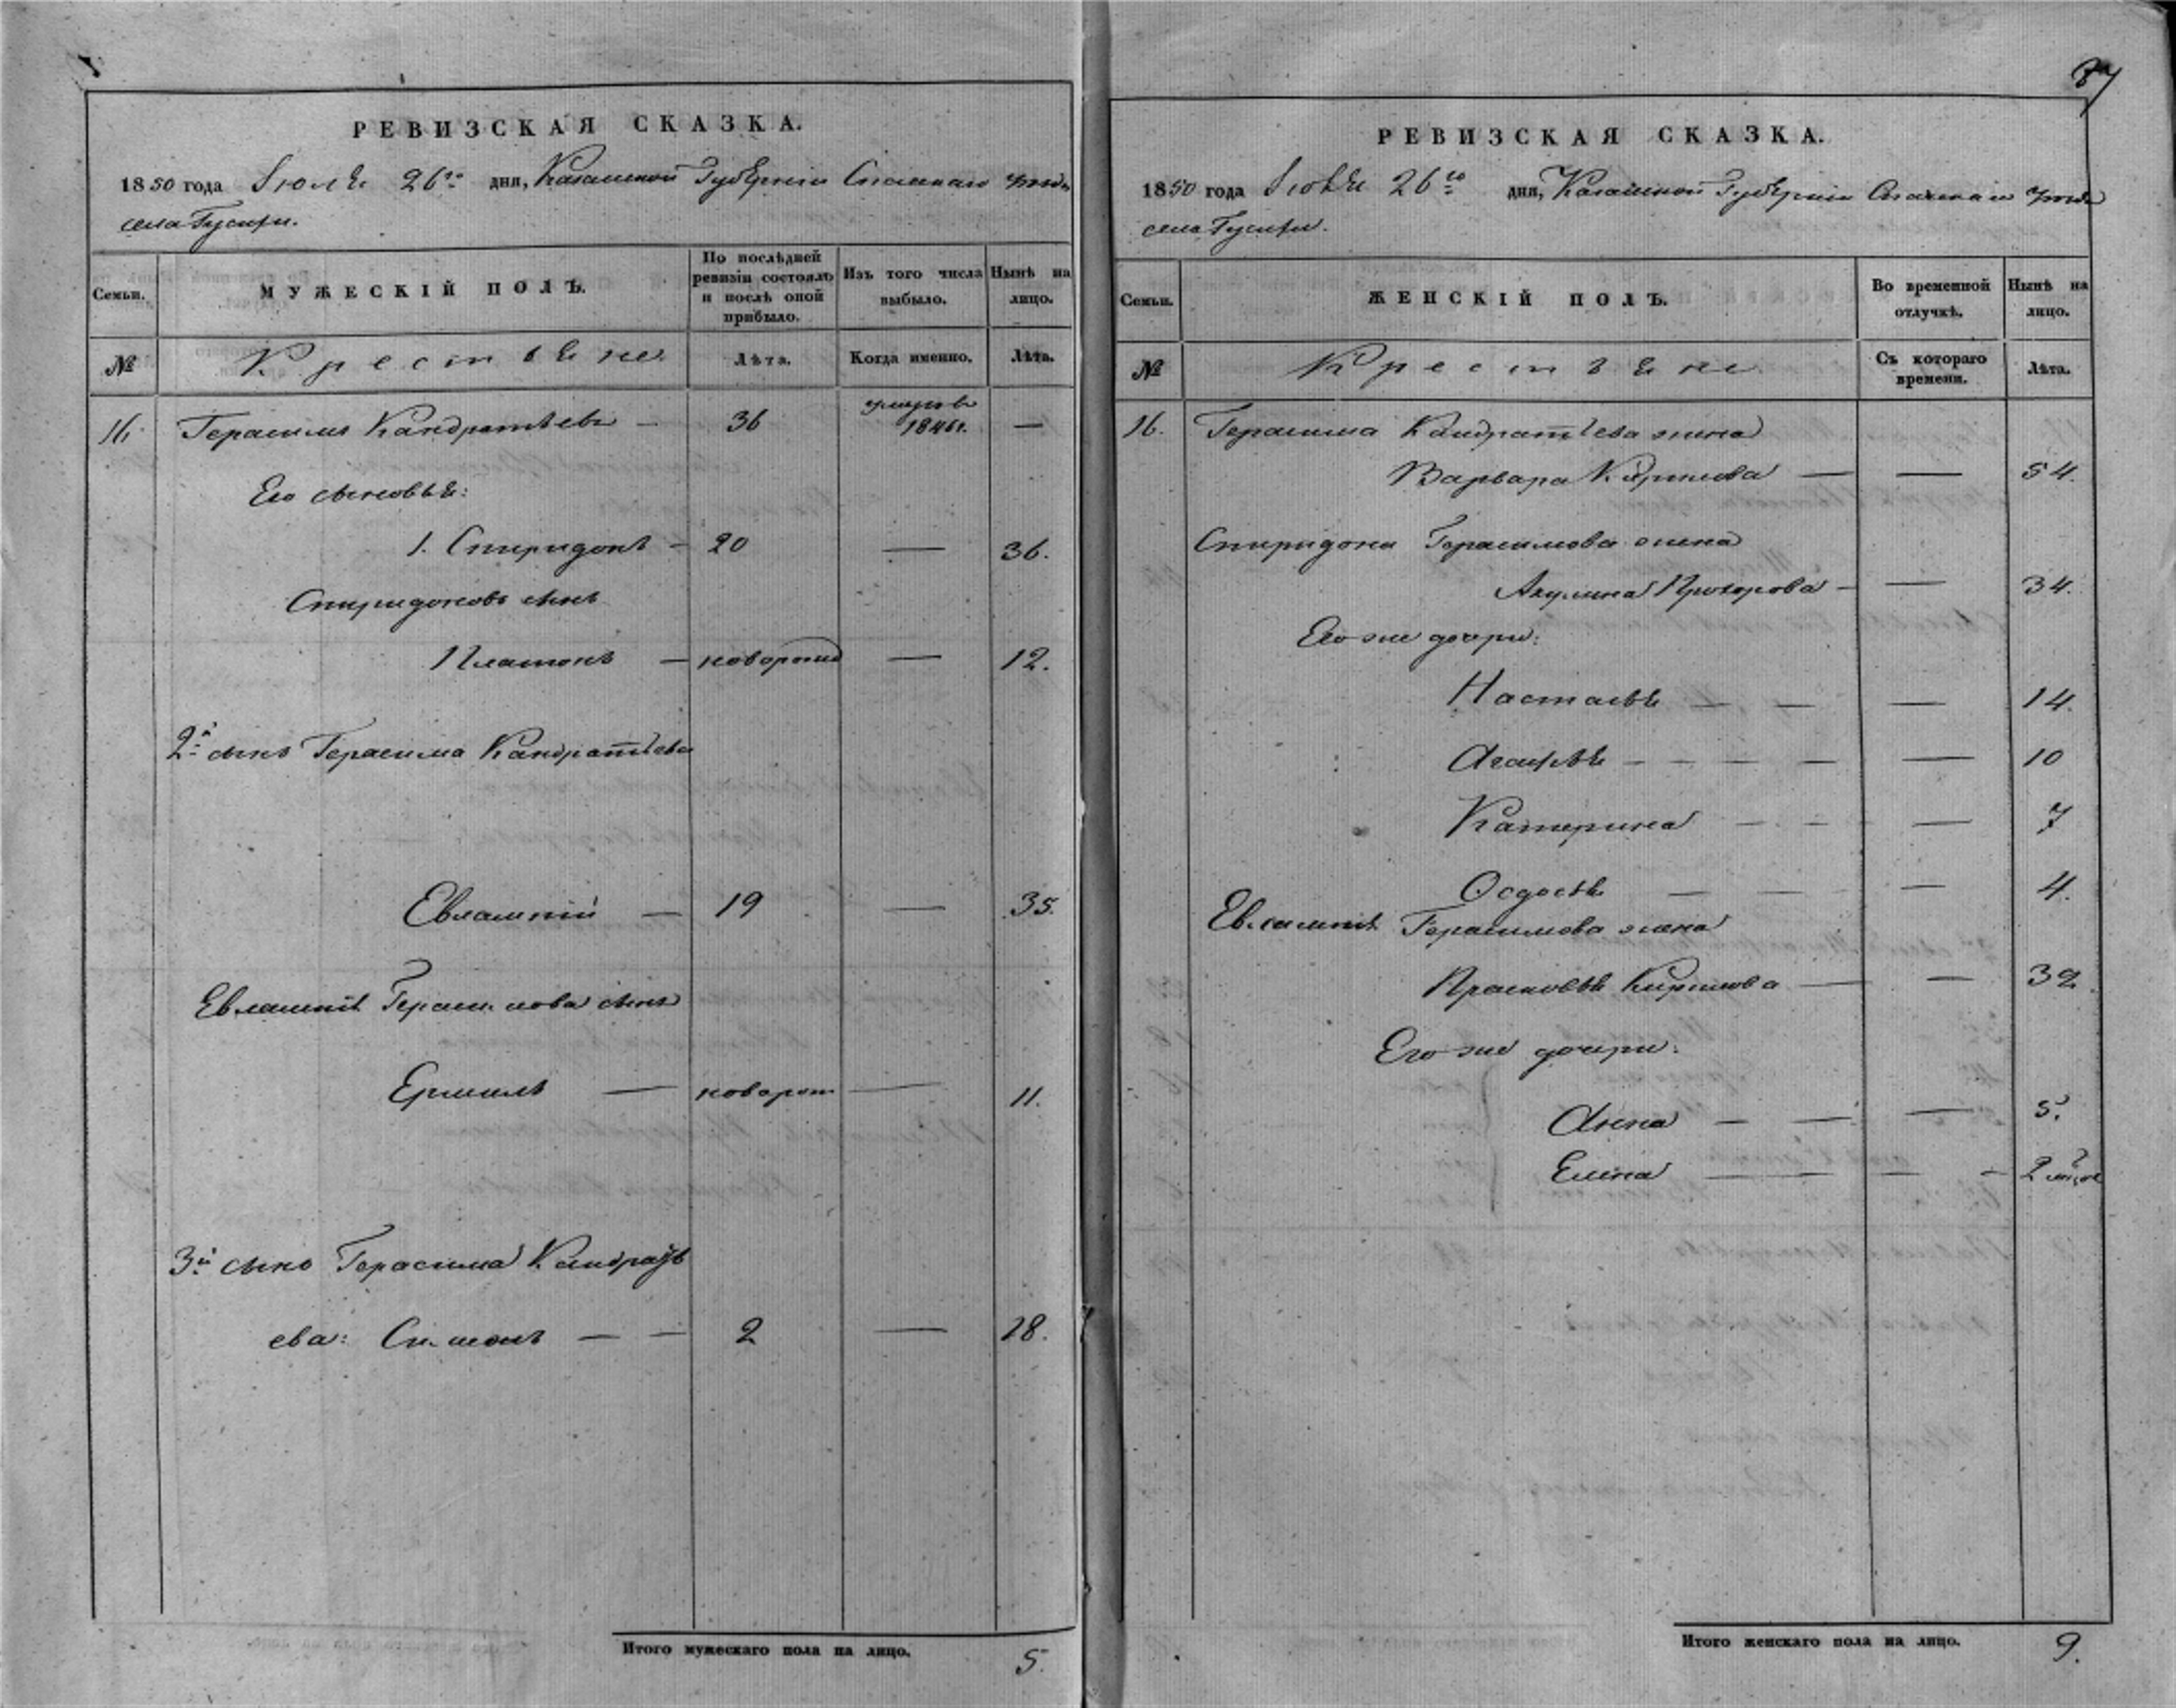 87
РЕВИЗСКАЯ СКАЗКА.
1850 года Іюля 26го дня, Казанской Губерніи Спаскаго уезда
села Гусихи.
Семьи.
МУЖЕСКІЙ ПОЛЪ.
По послѣдней ревизіи состояло и послѣ оной прибыло.
Изъ того числа выбыло.
Нынѣ на лицо.
№
Крестьяне
Лѣта.
Когда именно.
Лѣта.
16. Герасимъ Кандратьевъ — 36 умеръ в 1846г. —
Его сыновья:
1. Спиридонъ — 20 — 36.
Спиридоновъ сынъ
Платонъ — новорожд — 12.
2й сынъ Герасима Кандратьева
Евлампій — 19 — 35.
Евлампія Герасимова сынъ
Ермилъ — новорож — 11.
3й сынъ Герасима Кандрать
ева: Симонъ — — 2 — 18.
Итого мужескаго пола на лицо. 5.
РЕВИЗСКАЯ СКАЗКА.
1850 года Іюля 26го дня, Казанской Губерніи Спаскаго уезда
села Гусихи.
Семьи.
ЖЕНСКІЙ ПОЛЪ.
Во временной отлучкѣ.
Нынѣ на лицо.
№
Крестьяне
Съ котораго времени.
Лѣта.
16. Герасима Кандратьева жена
Варвара Кирилова — — 54.
Спиридона Герасимова жена
Акулина Прохорова — — 34.
Его же дочери:
Настасья — — — 14.
Агафья — — — — — 10
Катерина — — — — 7
Федосья — — — 4.
Евлампія Герасимова жена
Прасковья Кирилова — — 32.
Его же дочери:
Анна — — — 5.
Елена — — — — 2
Итого женскаго пола на лицо. 9.